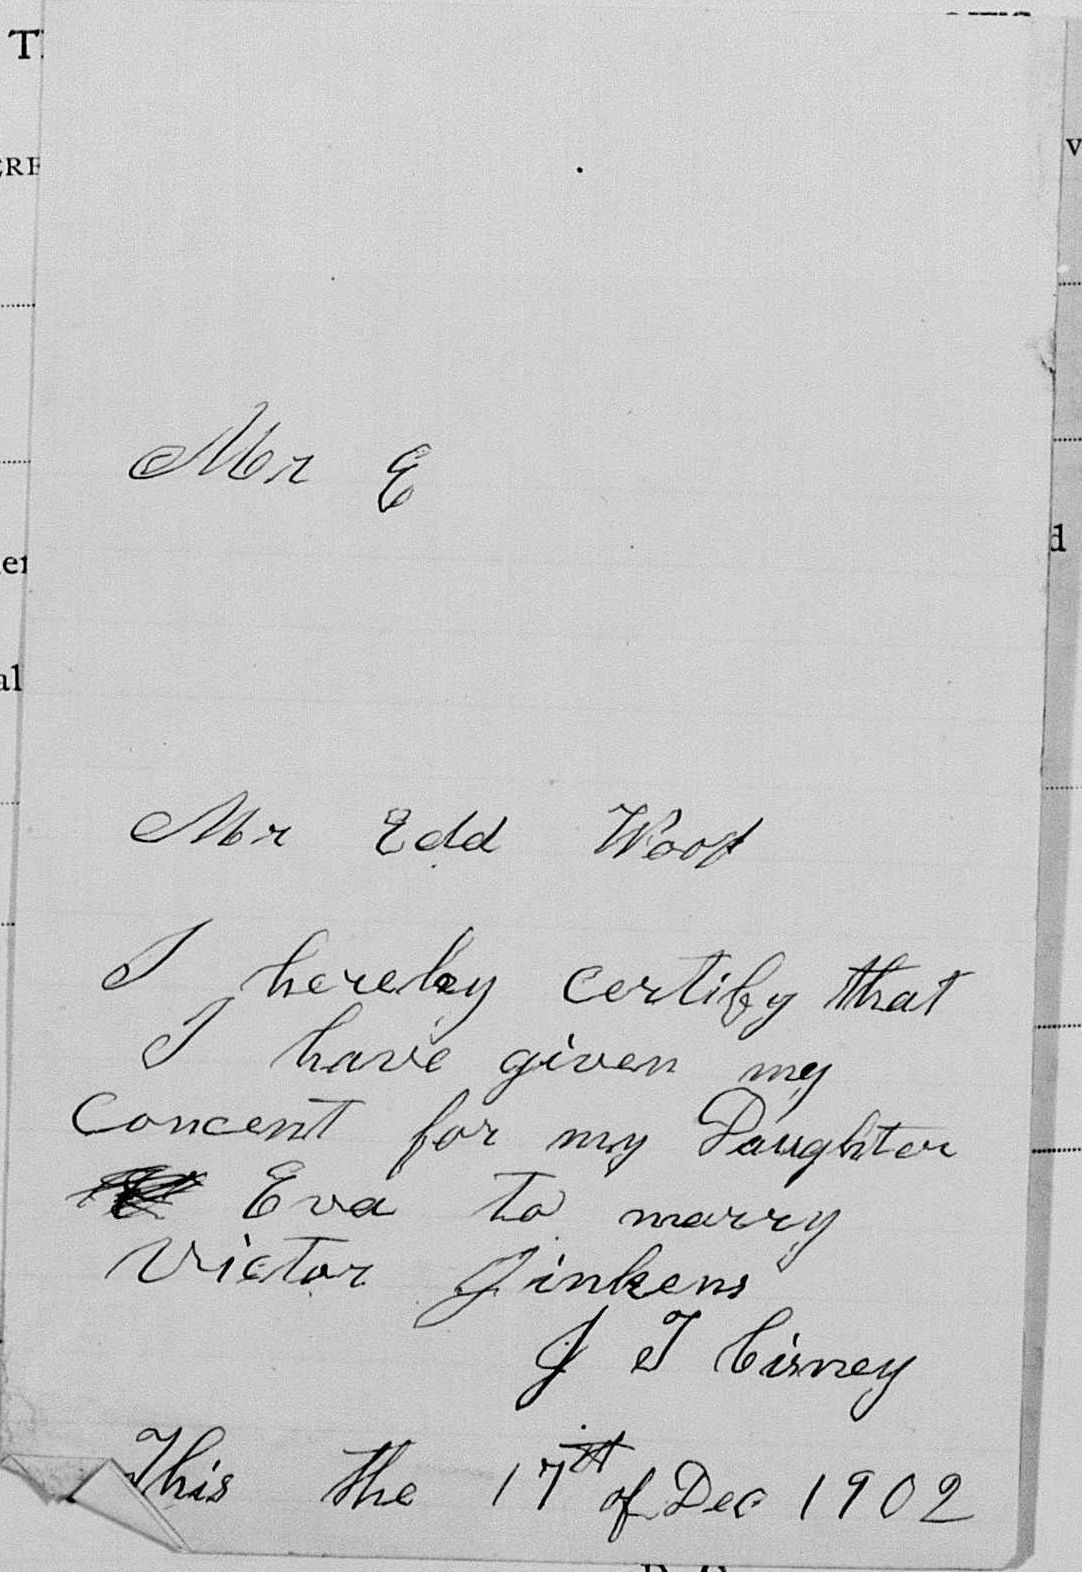 Mr E
Mr Edd Wood
I hereby certify that
I have given my
Concent for my Daughter
Eva to marry
Victor Jinkens
J T Cisney
This the 17th of Dec 1902